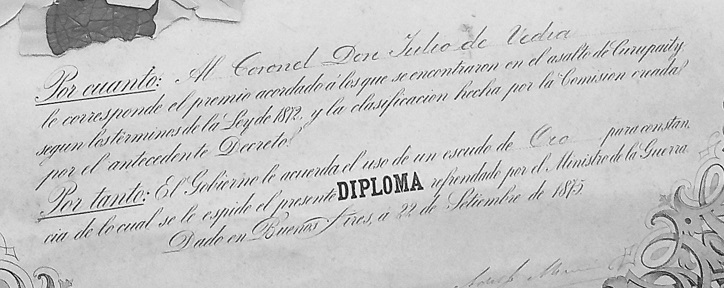 Por cuanto: Al Coronel Don Julio de Vedia
le corresponde el premio acordado á los que se encontraron en el asalto de Curupaity
segun los términos de la Ley de 1872, y la clasificacion hecha por la Comision creada
por el antecedente Decreto.
Por tanto: El Gobierno le acuerda el uso de un escudo de Oro para constan,
cia de lo cual se le espide el presente DIPLOMA refrendado por el Ministro de la Guerra
Dado en Buenos Aires, á 22 de Setiembre de 1875